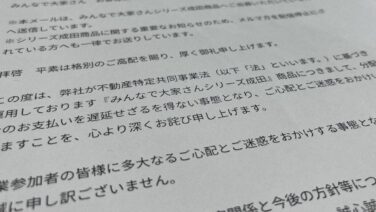 みんなで大家さん
※本メールは、みんなで大家さんシリーズ成田商品にご
へ送信しています。
※シリーズ成田商品に関する重要なお知らせのため、メルマガを
れている方へも一律でお送りしています。
拝啓 平素は格別のご高配を賜り、厚く御礼申し上げます。
この度は、弊社が不動産特定共同事業法（以下「法」といいます。）に基づき
運用しております『みんなで大家さんシリーズ成田』商品につきまして、分
のお支払いを遅延せざるを得ない事態となり、ご心配とご迷惑をおかけ
ますことを、心より深くお詫び申し上げます。
業参加者の皆様に多大なるご心配とご迷惑をおかけする事態とな
に申し訳ございません。
関係と今後の方針等につ